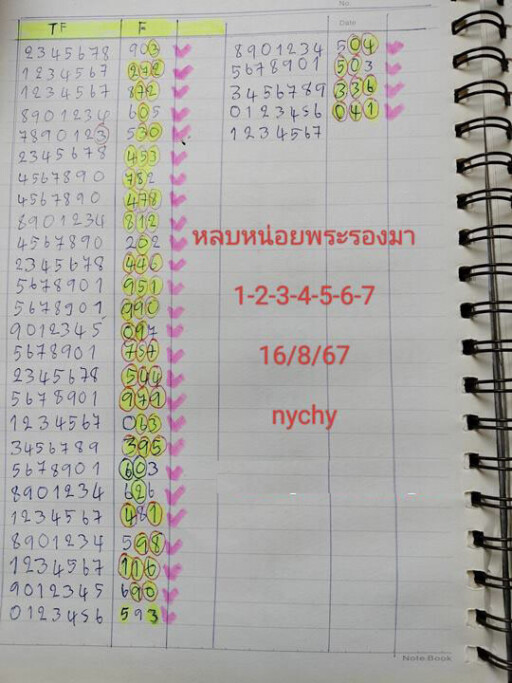 No.
Date
TF F
2345678 903
1234567 272
1234567 872
8901234 605
7890123 530
2345678 453
4567890 782
4567890 478
8901234 812
4567890 202
2345678 446
5678901 951
5678901 990
9012345 097
5678901 757
2345678 544
5678901 979
1234567 063
3456789 395
5678901 603
8901234 626
1234567 481
8901234 598
1234567 116
9012345 690
0123456 593
8901234 504
5678901 503
3456789 336
0123456 041
1234567
หลบหน่อยพระรองมา
1-2-3-4-5-6-7
16/8/67
nychy
Note Book